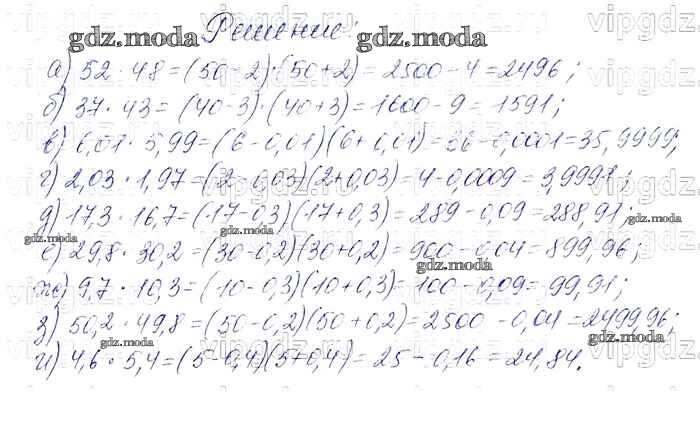 Решение:
а) 52 · 48 = (50 - 2) · (50 + 2) = 2500 - 4 = 2496;
б) 37 · 43 = (40 - 3) · (40 + 3) = 1600 - 9 = 1591;
в) 6,01 · 5,99 = (6 - 0,01)(6 + 0,01) = 36 - 0,0001 = 35,9999;
г) 2,03 · 1,97 = (2 - 0,03)(2 + 0,03) = 4 - 0,0009 = 3,9991;
д) 17,3 · 16,7 = (17 - 0,3)(17 + 0,3) = 289 - 0,09 = 288,91;
е) 29,8 · 30,2 = (30 - 0,2)(30 + 0,2) = 900 - 0,04 = 899,96;
ж) 9,7 · 10,3 = (10 - 0,3)(10 + 0,3) = 100 - 0,09 = 99,91;
з) 50,2 · 49,8 = (50 - 0,2)(50 + 0,2) = 2500 - 0,04 = 2499,96;
и) 4,6 · 5,4 = (5 - 0,4)(5 + 0,4) = 25 - 0,16 = 24,84.
gdz.moda
gdz.moda
gdz.moda
gdz.moda
gdz.moda
gdz.moda
gdz.moda
gdz.moda
vipgdz.ru